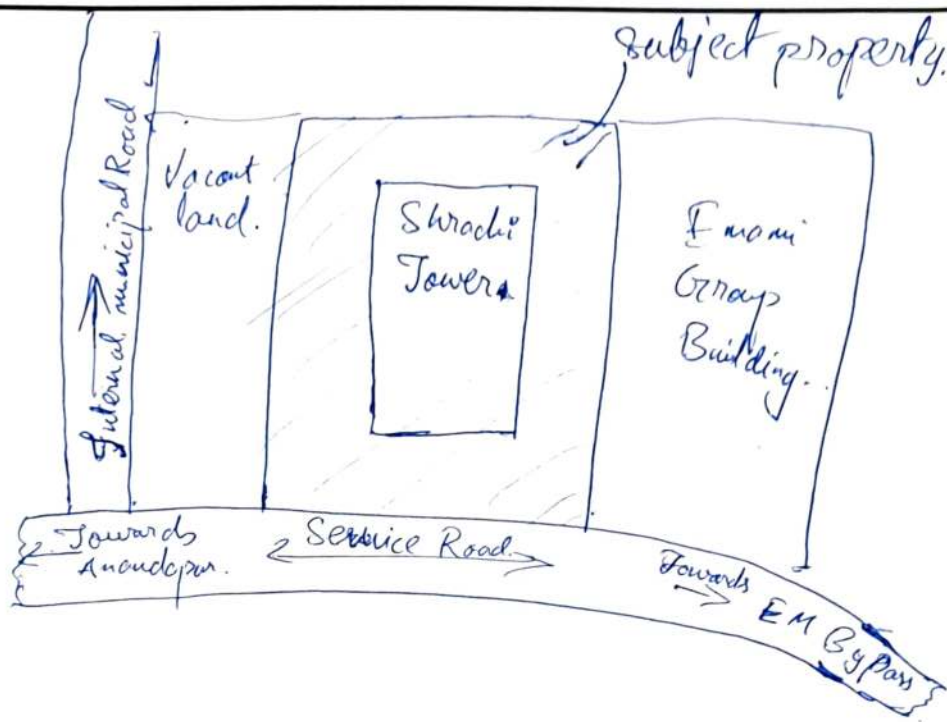 subject property.
Internal municipal Road
Vacant
land.
Shrachi
Tower.
Emami
Group
Building..
Towards
Anandapur.
Service Road
Towards
EM Bypass